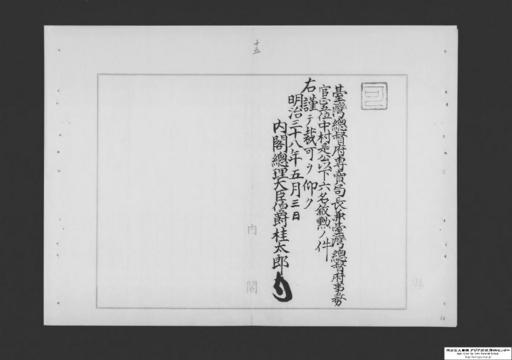 十五
臺灣總督府專賣局長兼臺灣總督府事務
官正五位中村是公以下六名叙勲ノ件
右謹テ裁可ヲ仰ク
明治三十八年五月三日
内閣總理大臣伯爵桂太郎
内閣